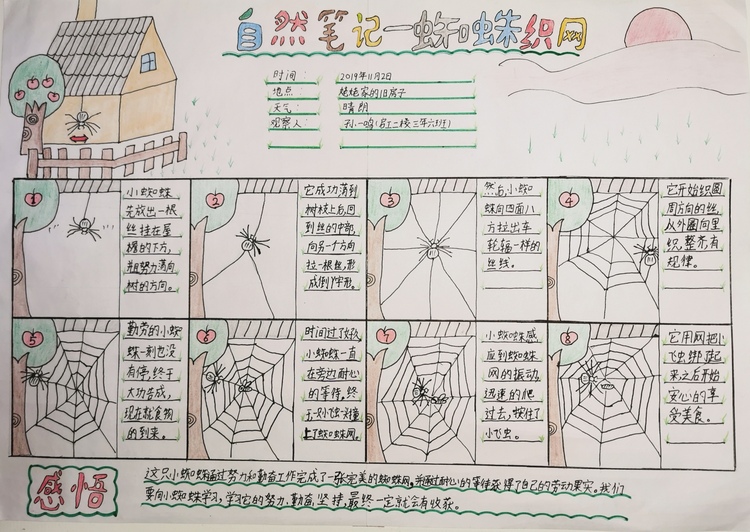 自然笔记—蜘蛛织网
时间: 2019年11月2日
地点: 姥姥家的旧房子
天气: 晴朗
观察人: 孙一鸣(石工二校三年六班)
1
小蜘蛛
先放出一根
丝挂在屋
檐的下方,
并努力荡向
树的方向。
2
它成功荡到
树枝上后,回
到丝的中部,
向另一个方向
拉一根丝,形
成倒Y字形。
3
然后,小蜘
蛛向四面八
方拉出车
轮辐一样的
丝线。
4
它开始织圆
周方向的丝,
从外圈向里
织,整齐,有
规律。
5
勤劳的小蜘
蛛一刻也没
有停,终于
大功告成,
现在就食物
的到来。
6
时间过了好久,
小蜘蛛一直
在旁边耐心
的等待,终
于一只小虫撞
上了蜘蛛网。
7
小蜘蛛感
应到蜘蛛
网的振动,
迅速的爬
过去,按住了
小飞虫。
8
它用网把小
飞虫绑起
来,之后开始
安心的享
受美食。
感悟
这只小蜘蛛通过努力和勤奋工作完成了一张完美的蜘蛛网。并通过耐心的等待获得了自己的劳动果实。我们
要向小蜘蛛学习,学习它的努力、勤奋、坚持,最终一定就会有收获。